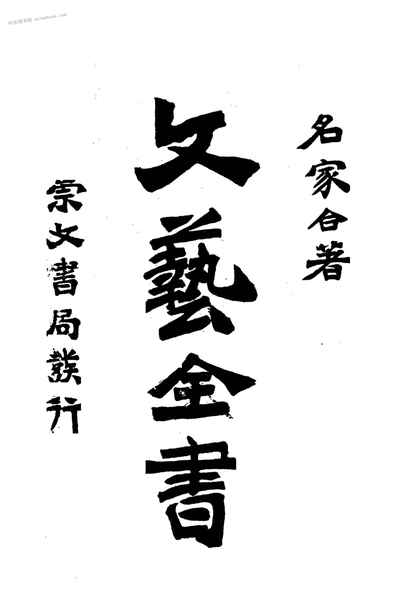 名家合著
文藝全書
崇文書局發行